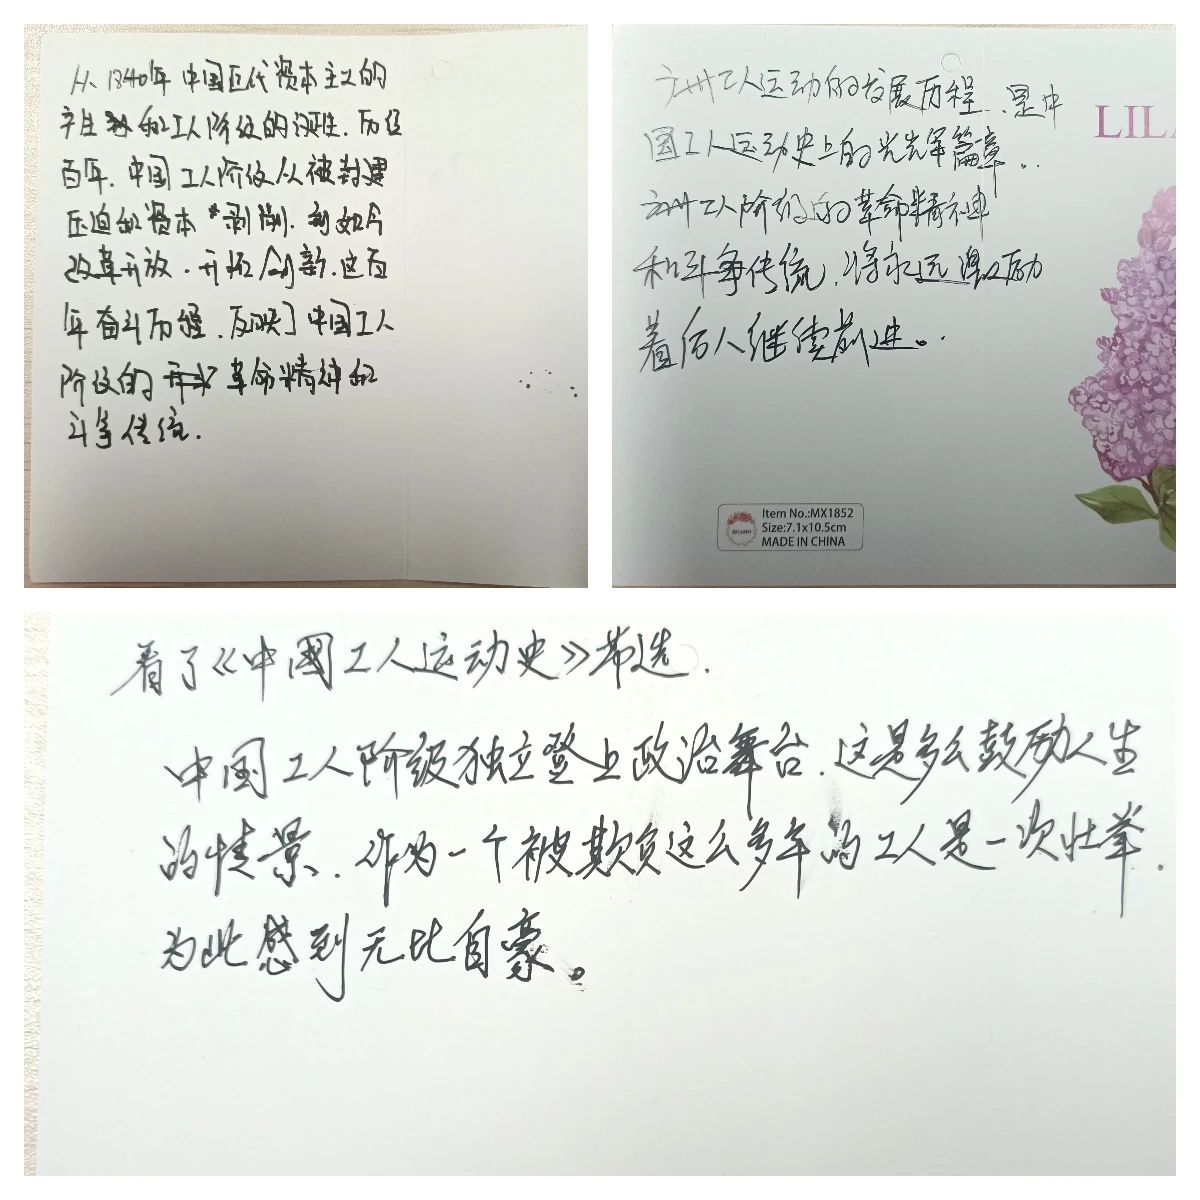 从1840年中国近代资本主义的
产生和工人阶级的诞生.历经
百年.中国工人阶级从被封建
压迫和资本剥削.到如今
改革开放.开拓创新.这百
年奋斗历程.反映了中国工人
阶级的革命精神和
斗争传统.
工人运动的发展历程..是中
国工人运动史上的光辉篇章..
工人阶级的革命精神
和斗争传统.将永远激励
着后人继续前进。.
LIL
Item No.:MX1852
Size:7.1x10.5cm
MADE IN CHINA
看了《中國工人运动史》节选.
中国工人阶级独立登上政治舞台.这是多么鼓励人生
的情景.作为一个被欺负这么多年的工人是一次壮举.
为此感到无比自豪。